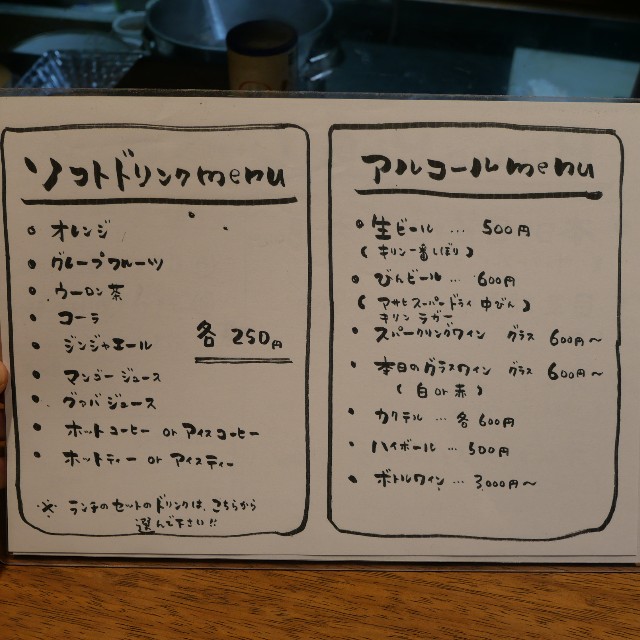 ソフトドリンクmenu
• オレンジ
• グレープフルーツ
• ウーロン茶
• コーラ
• ジンジャエール
• マンゴージュース
• グァバジュース
• ホットコーヒー or アイスコーヒー
• ホットティー or アイスティー
各 250円
※ ランチのセットのドリンクは、こちらから
選んで下さい!!
アルコールmenu
• 生ビール … 500円
(キリン一番しぼり)
• びんビール … 600円
(アサヒスーパードライ 中びん)
キリンラガー
• スパークリングワイン グラス 600円〜
• 本日のグラスワイン グラス 600円〜
(白or赤)
• カクテル … 各600円
• ハイボール … 500円
• ボトルワイン … 3,000円〜